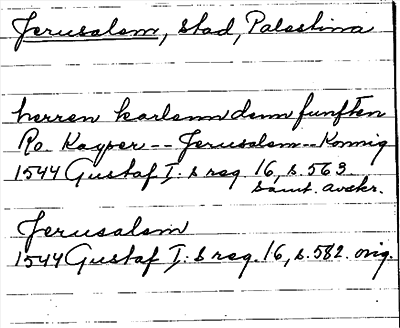 Jerusalem, stad, Palestina
herren karlenn denn funfften
Ro. Kayser -- Jerusalem -- Konnig
1544 Gustaf I:s reg. 16, s. 563.
samt. avskr.
Jerusalem
1544 Gustaf I:s reg. 16, s. 582. orig.